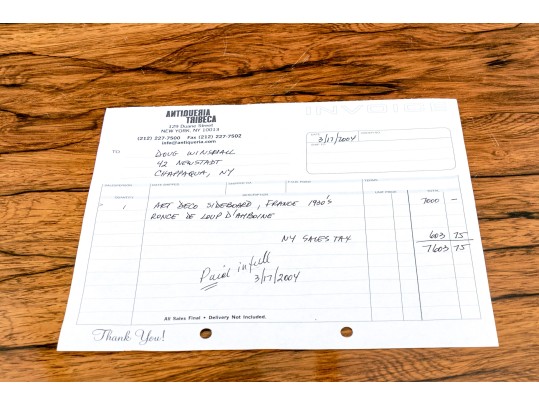 INVOICE
ANTIQUERIA
TRIBECA
129 Duane Street
NEW YORK, NY 10013
(212) 227-7500 Fax (212) 227-7502
info@antiqueria.com
3/17/2004
TO
DOUG WINSHALL
42 NEWSTADT
CHAPPAQUA, NY
QUANTITY
DESCRIPTION
UNIT PRICE
TOTAL
1 ART DECO SIDEBOARD, FRANCE 1930's 7000 —
RONCE DE LOUP D'AMBOINE
NY SALES TAX 603 75
7603 75
Paid in full
3/17/2004
All Sales Final • Delivery Not Included.
Thank You!